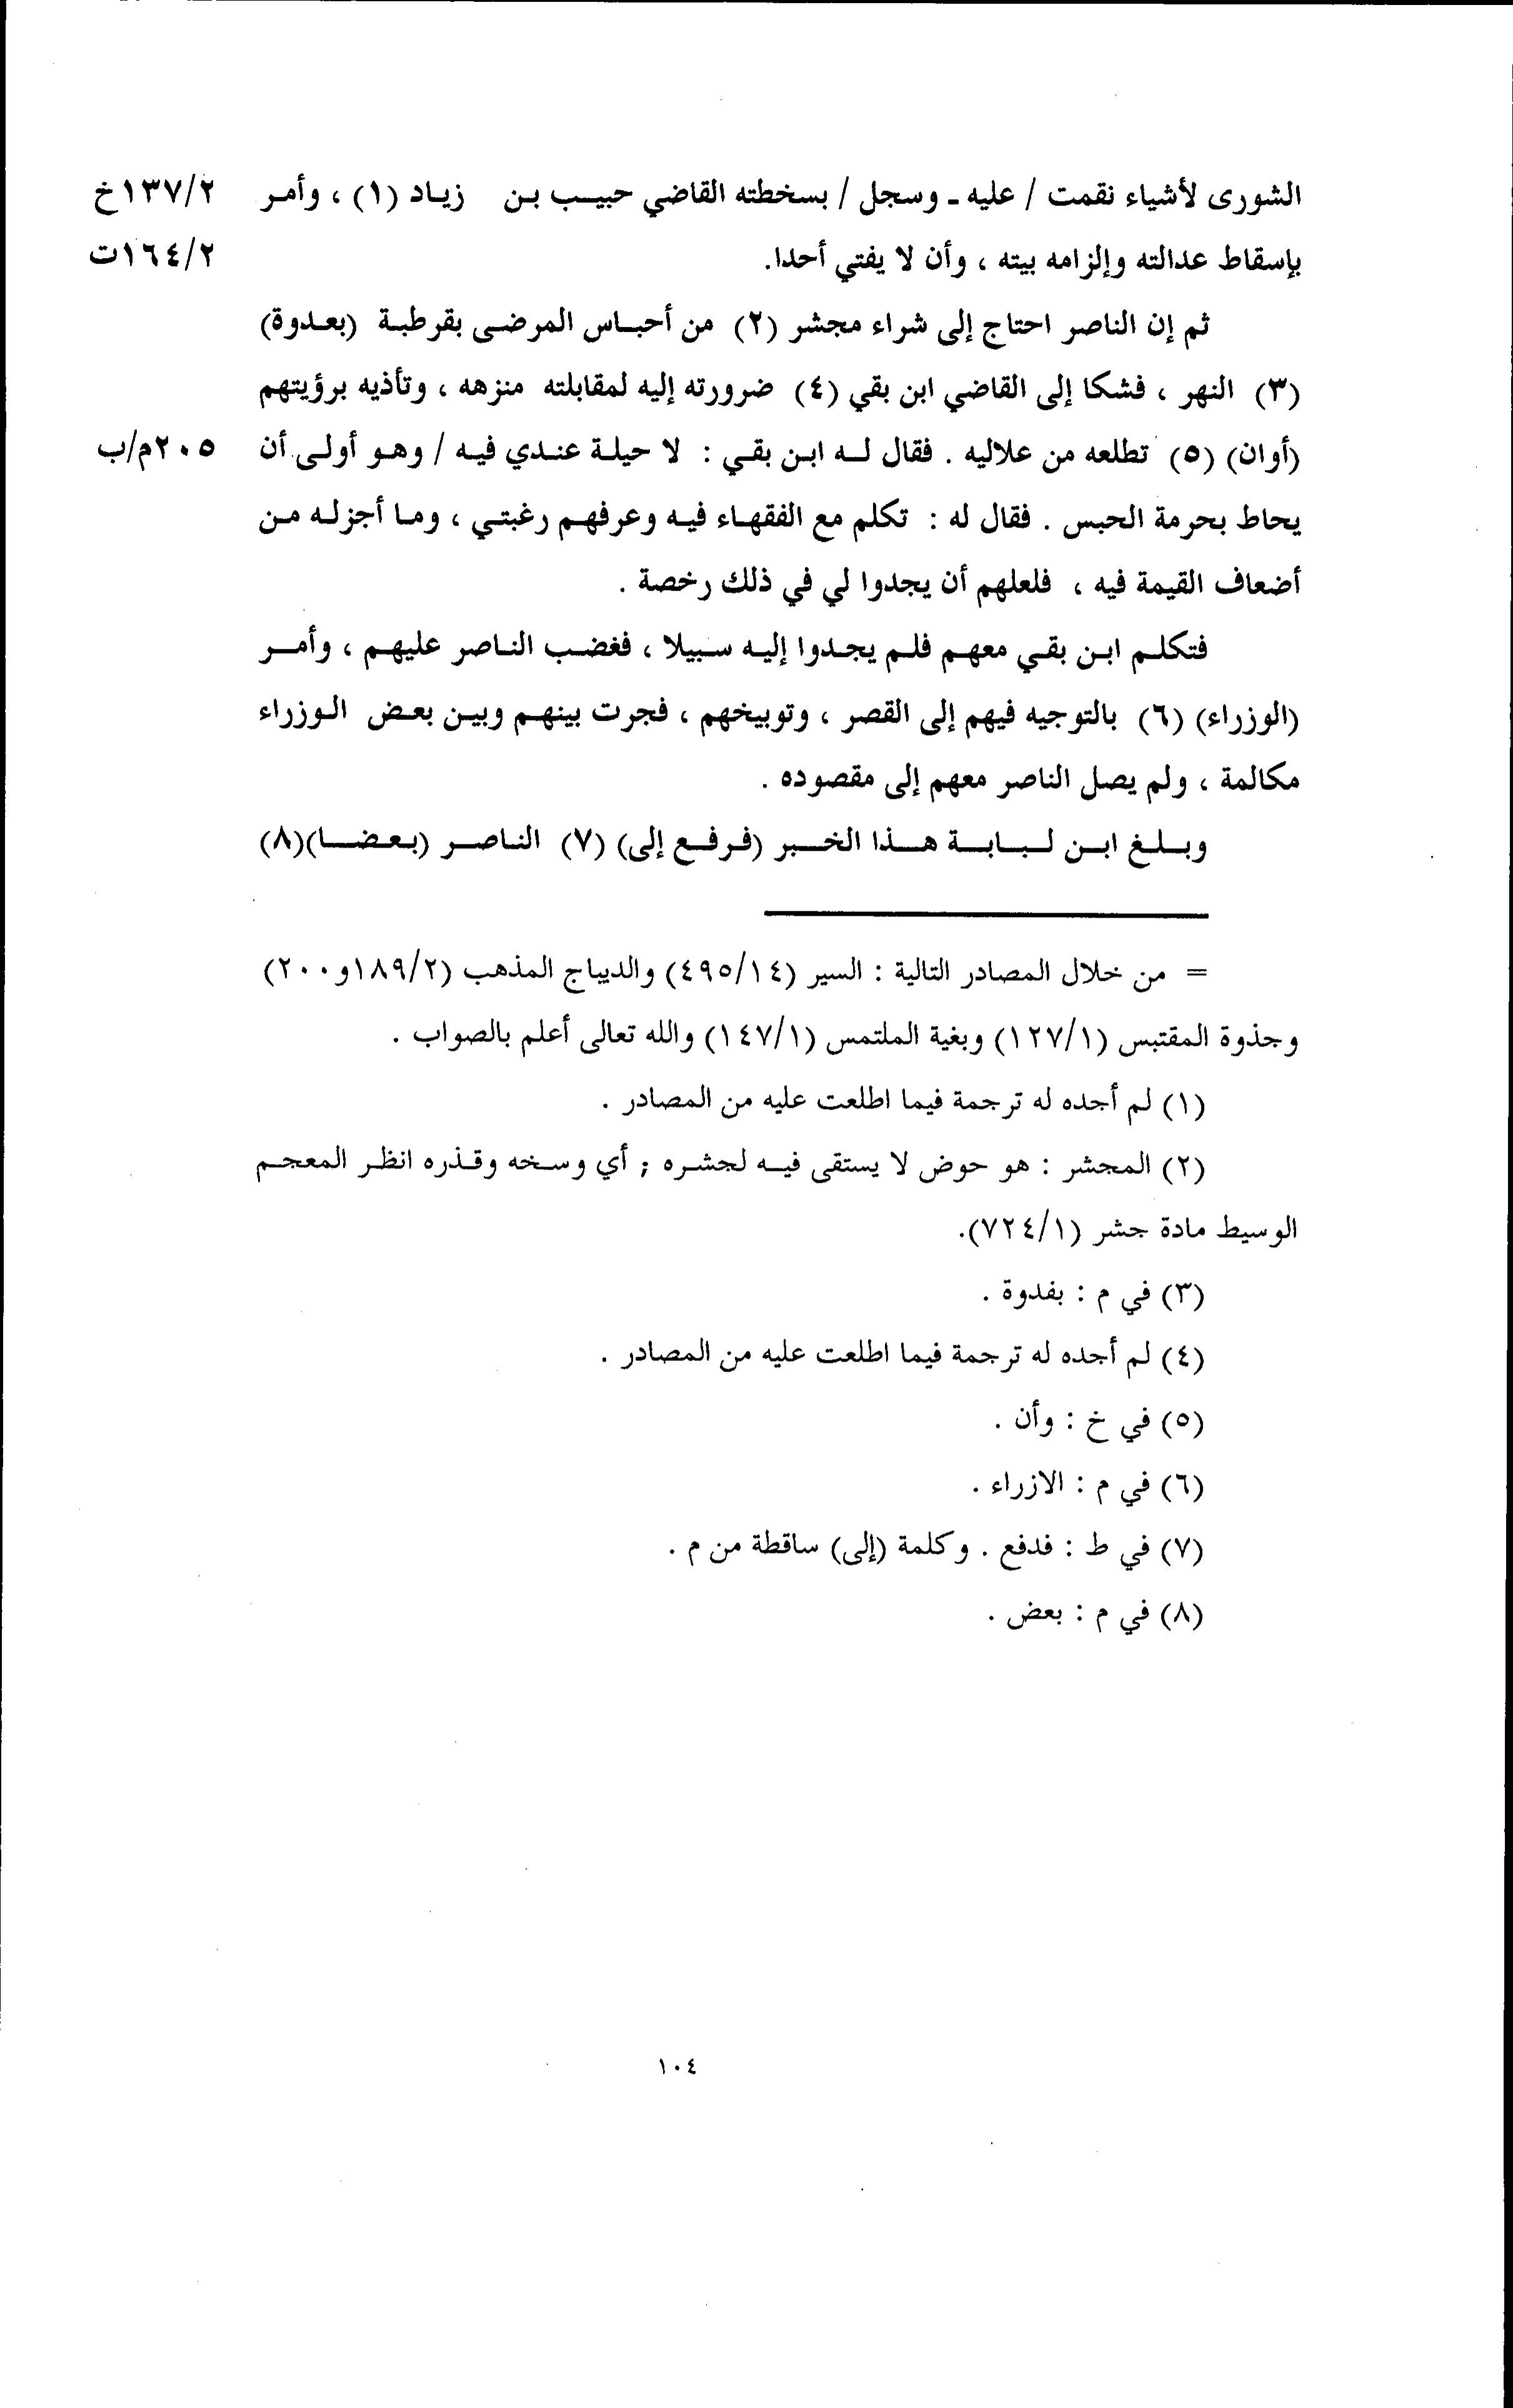 الشورى لأشياء نقمت / عليه ـ وسجل / بسخطته القاضي حبيب بن زياد (١) ، وأمر ١٣٧/٢خ
بإسقاط عدالته وإلزامه بيته ، وأن لا يفتي أحدا. ١٦٤/٢ت
ثم إن الناصر احتاج إلى شراء مجشر (٢) من أحباس المرضى بقرطبة (بعدوة)
(٣) النهر ، فشكا إلى القاضي ابن بقي (٤) ضرورته إليه لمقابلته منزهه ، وتأذيه برؤيتهم
(أوان) (٥) تطلعه من علاليه . فقال له ابن بقي : لا حيلة عندي فيه / وهو أولى أن ٢٠٥م/ب
يحاط بحرمة الحبس . فقال له : تكلم مع الفقهاء فيه وعرفهم رغبتي ، وما أجزله من
أضعاف القيمة فيه ، فلعلهم أن يجدوا لي في ذلك رخصة .
فتكلم ابن بقي معهم فلم يجدوا إليه سبيلا ، فغضب الناصر عليهم ، وأمر
(الوزراء) (٦) بالتوجيه فيهم إلى القصر ، وتوبيخهم ، فجرت بينهم وبين بعض الوزراء
مكالمة ، ولم يصل الناصر معهم إلى مقصوده .
وبلغ ابن لبابة هذا الخبر (فرفع إلى) (٧) الناصر (بعضا)(٨)
= من خلال المصادر التالية : السير (٤٩٥/١٤) والديباج المذهب (١٨٩/٢و٢٠٠)
وجذوة المقتبس (١٢٧/١) وبغية الملتمس (١٤٧/١) والله تعالى أعلم بالصواب .
(١) لم أجده له ترجمة فيما اطلعت عليه من المصادر .
(٢) المجشر : هو حوض لا يستقى فيه لجشره ; أي وسخه وقذره انظر المعجم
الوسيط مادة جشر (٧٢٤/١).
(٣) في م : بفدوة .
(٤) لم أجده له ترجمة فيما اطلعت عليه من المصادر .
(٥) في خ : وأن .
(٦) في م : الازراء .
(٧) في ط : فدفع . وكلمة (إلى) ساقطة من م .
(٨) في م : بعض .
١٠٤